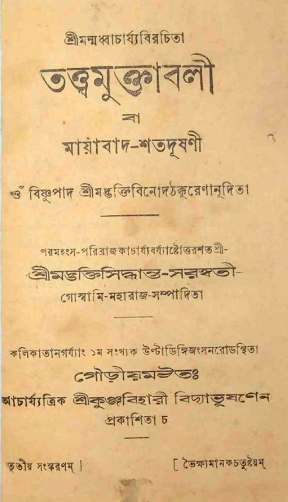 শ্রীমন্মধ্বাচার্য্যবিরচিতা
তত্ত্বমুক্তাবলী
বা
মায়াবাদ-শতদূষণী
ওঁ বিষ্ণুপাদ শ্রীমদ্ভক্তিবিনোদঠক্কুরেণানূদিতা
পরমহংস-পরিব্রাজকাচার্য্যবর্য্যাষ্টোত্তরশতশ্রী-
শ্রীমদ্ভক্তিসিদ্ধান্ত-সরস্বতী-
গোস্বামি-মহারাজ-সম্পাদিতা
কলিকাতানগর্য্যাং ১ম সংখ্যক উল্টাডিঙ্গিজংসনরোডস্থিতা
গৌড়ীয়মঠতঃ
আচার্য্যত্রিক শ্রীকুঞ্জবিহারী বিদ্যাভূষণেন
প্রকাশিতা চ
তৃতীয় সংস্করণম্‌। [ ভৈক্ষ্যমানকচতুষ্টয়ম্‌